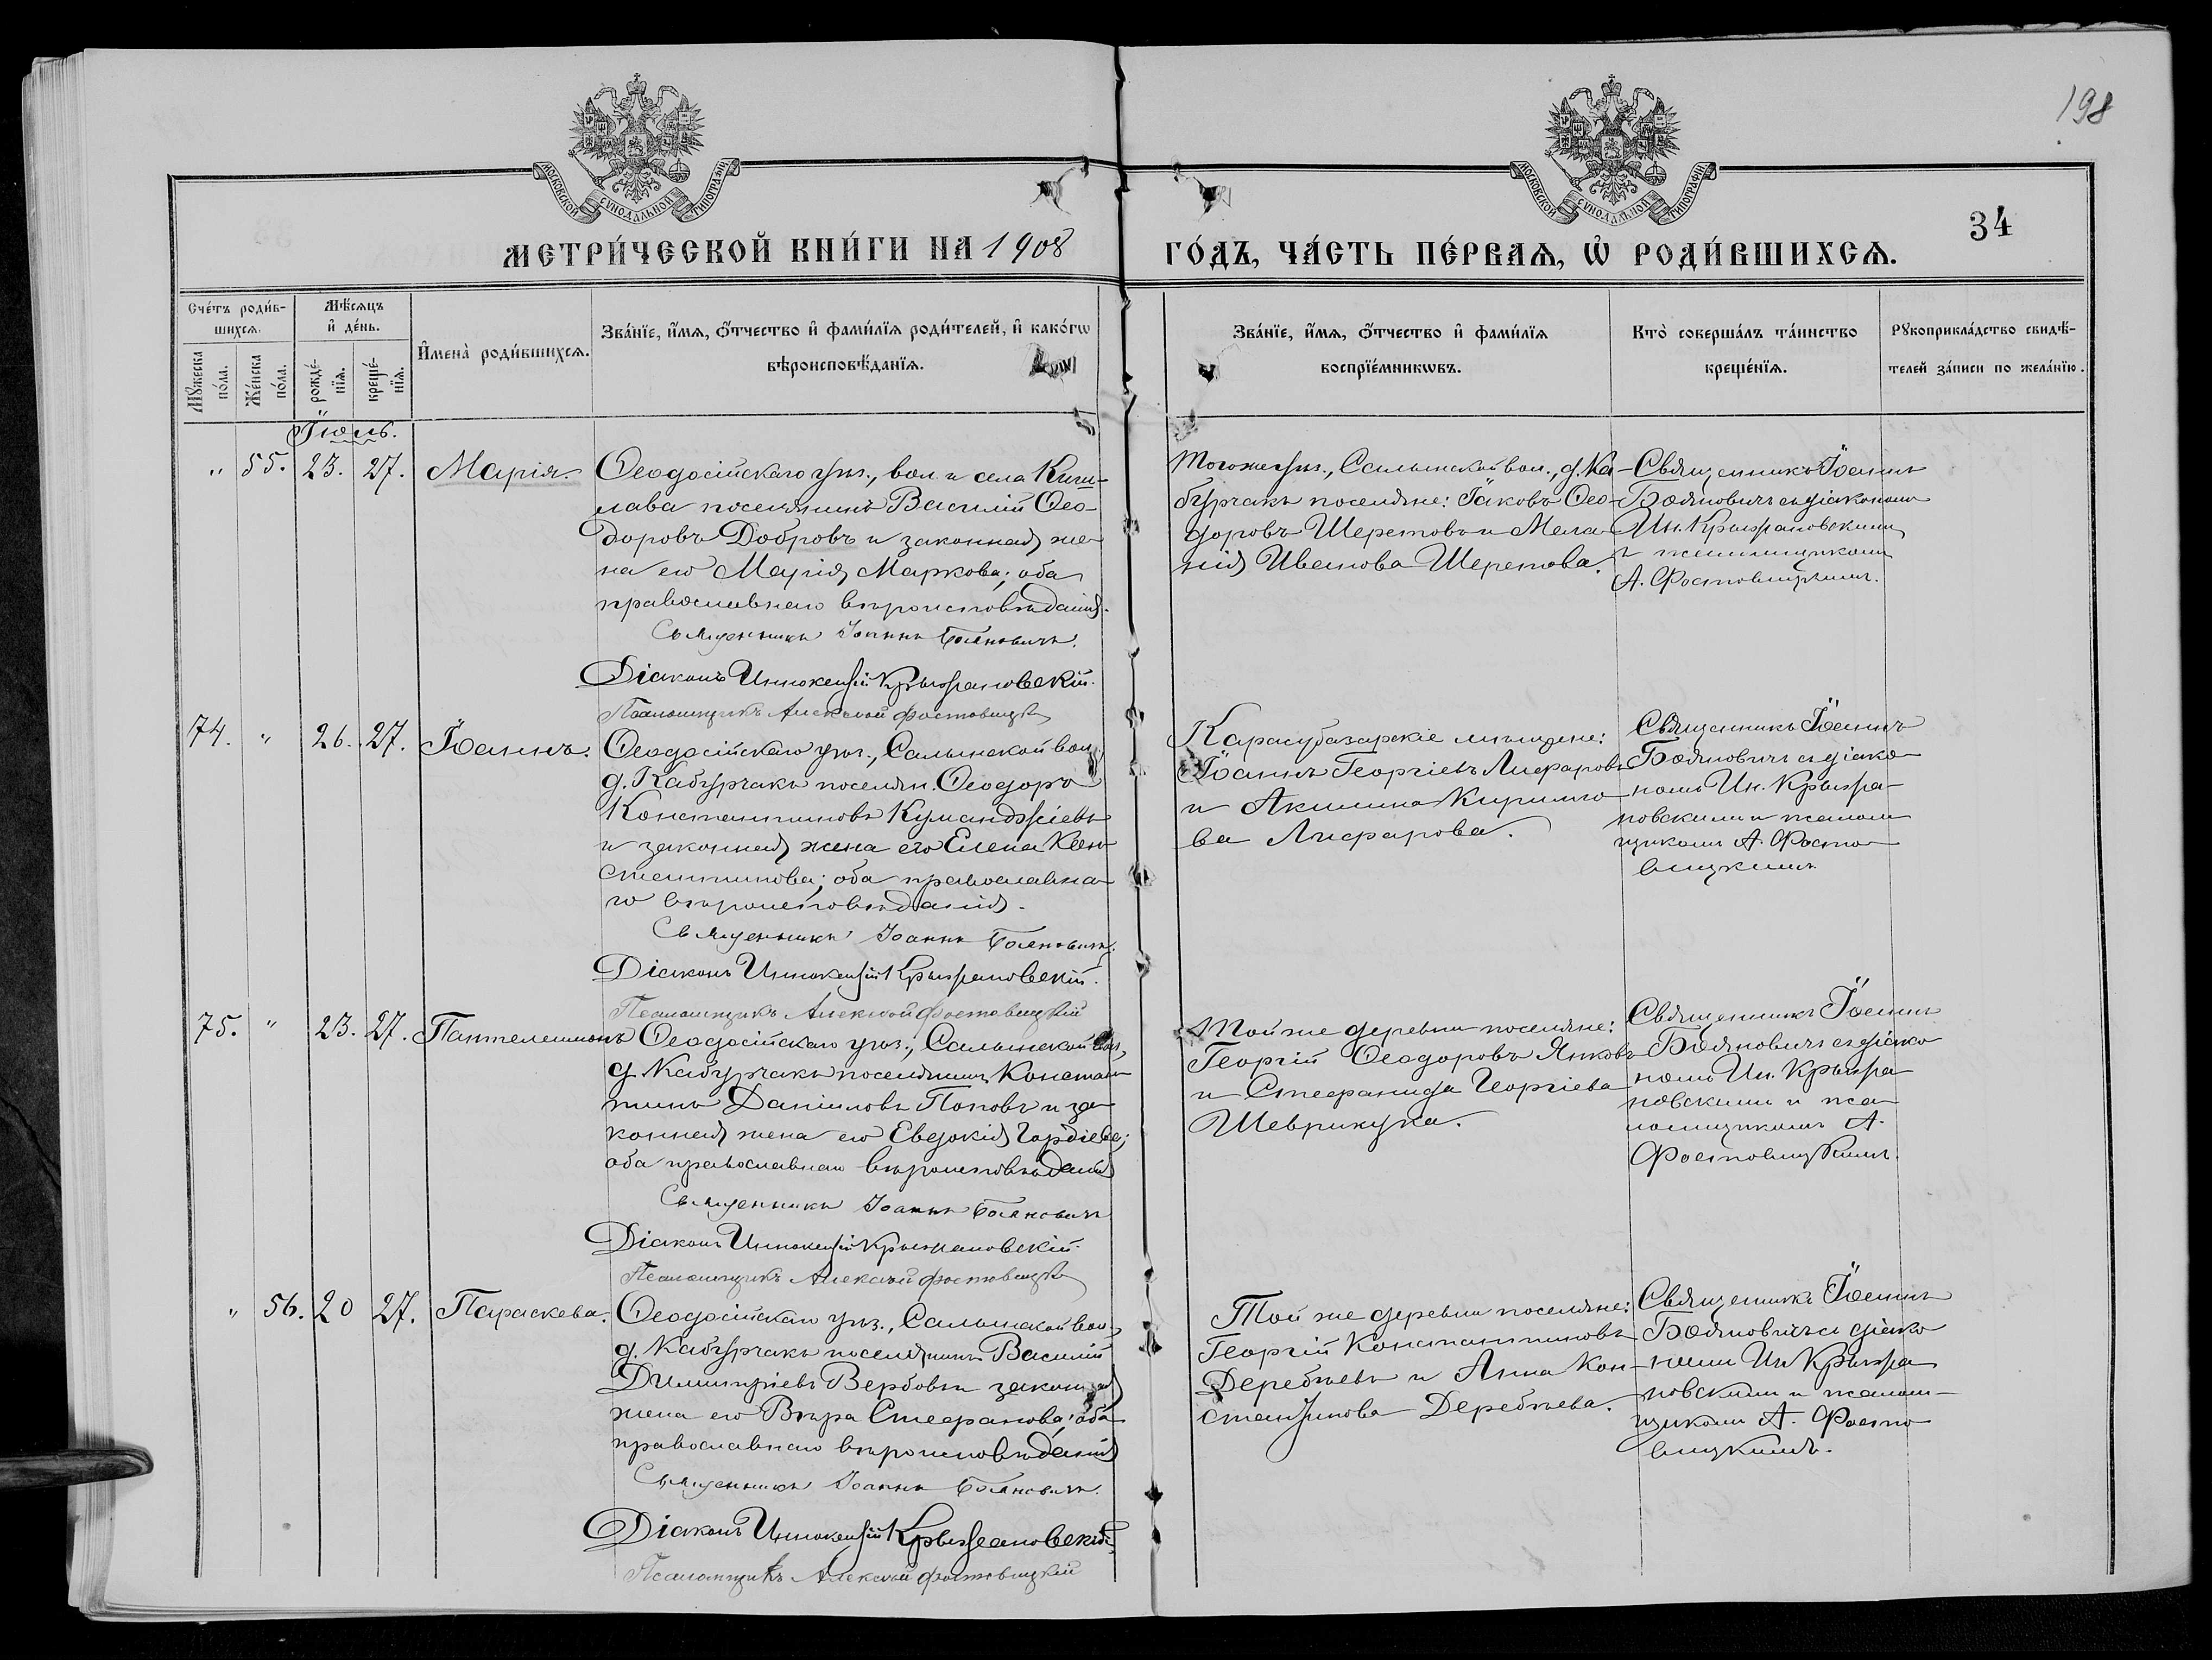 198
МОСКОВСКОЙ СѴНОДАЛЬНОЙ ТИПОГРАФІИ
МОСКОВСКОЙ СѴНОДАЛЬНОЙ ТИПОГРАФІИ
34
МЕТРИ́ЧЕСКОЙ КНИ́ГИ НА 1908
ГО́ДЪ, ЧА́СТЬ ПЕ́РВАѦ, Ѡ РОДИ́ВШИХСѦ.
Сче́тъ роди́в-
шихсѧ.
Мꙋ́жеска по́ла.
Же́нска по́ла.
Мѣ́сѧцъ
и҆ де́нь.
рожде́-
нїѧ.
креще́-
нїѧ.
И҆мена̀ роди́вшихсѧ.
Зва́нїе, и҆́мѧ, ѻ҆́тчество и҆ фами́лїѧ роди́телей, и҆ како́гѡ
вѣроисповѣ́данїѧ.
Зва́нїе, и҆́мѧ, ѻ҆́тчество и҆ фами́лїѧ
воспрїе́мникѡвъ.
Кто̀ соверша́лъ та́инство
креще́нїѧ.
Рꙋкоприкла́дство свидѣ́-
телей за́писи по жела́нїю.
Іюль.
" 55. 23. 27. Марія.
Ѳеодосійскаго уѣз., вол. и села Киш-
лава поселянинъ Василій Ѳео-
доровъ Добровъ и законная же-
на его Марія Маркова; оба
православнаго вѣроисповѣданія.
Священникъ Іоаннъ Бояновичъ.
Діаконъ Иннокентій Крыжановскій.
Псаломщикъ Алексѣй Фостовицкій
Тогоже уѣз., Салынской вол., д. Ка-
бурчакъ поселяне: Іаковъ Ѳео-
доровъ Шеретовъ и Мела-
нія Иванова Шеретова.
Священникъ Іоаннъ
Бояновичъ съ діакономъ
Ин. Крыжановскимъ
и псаломщикомъ
А. Фостовицкимъ.
74. " 26. 27. Іоаннъ.
Ѳеодосійскаго уѣз., Салынской вол.
д. Кабурчакъ поселян. Ѳеодоръ
Константиновъ Куманджіевъ
и законная жена его Елена Кон-
стантинова; оба православна-
го вѣроисповѣданія.
Священникъ Іоаннъ Бояновичъ.
Діаконъ Иннокентій Крыжановскій.
Псаломщикъ Алексѣй Фостовицкій
Карасубазарскіе мѣщане:
Іоаннъ Георгіевъ Лифаровъ
и Акилина Кирилло-
ва Лифарова.
Священникъ Іоаннъ
Бояновичъ съ діако-
номъ Ин. Крыжа-
новскимъ и псалом-
щикомъ А. Фосто-
вицкимъ
75. " 23. 27. Пантелеимонъ
Ѳеодосійскаго уѣз., Салынской вол.,
д. Кабурчакъ поселянинъ Констан-
тинъ Даніиловъ Поповъ и за-
конная жена его Евдокія Гордіева;
оба православнаго вѣроисповѣданія
Священникъ Іоаннъ Бояновичъ
Діаконъ Иннокентій Крыжановскій.
Псаломщикъ Алексѣй Фостовицкій
Той же деревни поселяне:
Георгій Ѳеодоровъ Янковъ
и Стефанида Георгіева
Шеврикука.
Священникъ Іоаннъ
Бояновичъ съ діако-
номъ Ин. Крыжа-
новскимъ и пса-
ломщикомъ А.
Фостовицкимъ.
" 56. 20 27. Параскева.
Ѳеодосійскаго уѣз., Салынской вол.,
д. Кабурчакъ поселянинъ Василій
Димитріевъ Вербовъ и законная
жена его Вѣра Стефанова; оба
православнаго вѣроисповѣданія
Священникъ Іоаннъ Бояновичъ.
Діаконъ Иннокентій Крыжановскій
Псаломщикъ Алексѣй Фостовицкій
Той же деревни поселяне:
Георгій Константиновъ
Деребѣевъ и Анна Кон-
стантинова Деребѣева.
Священникъ Іоаннъ
Бояновичъ съ діако-
номъ Ин. Крыжа-
новскимъ и псалом-
щикомъ А. Фосто-
вицкимъ.